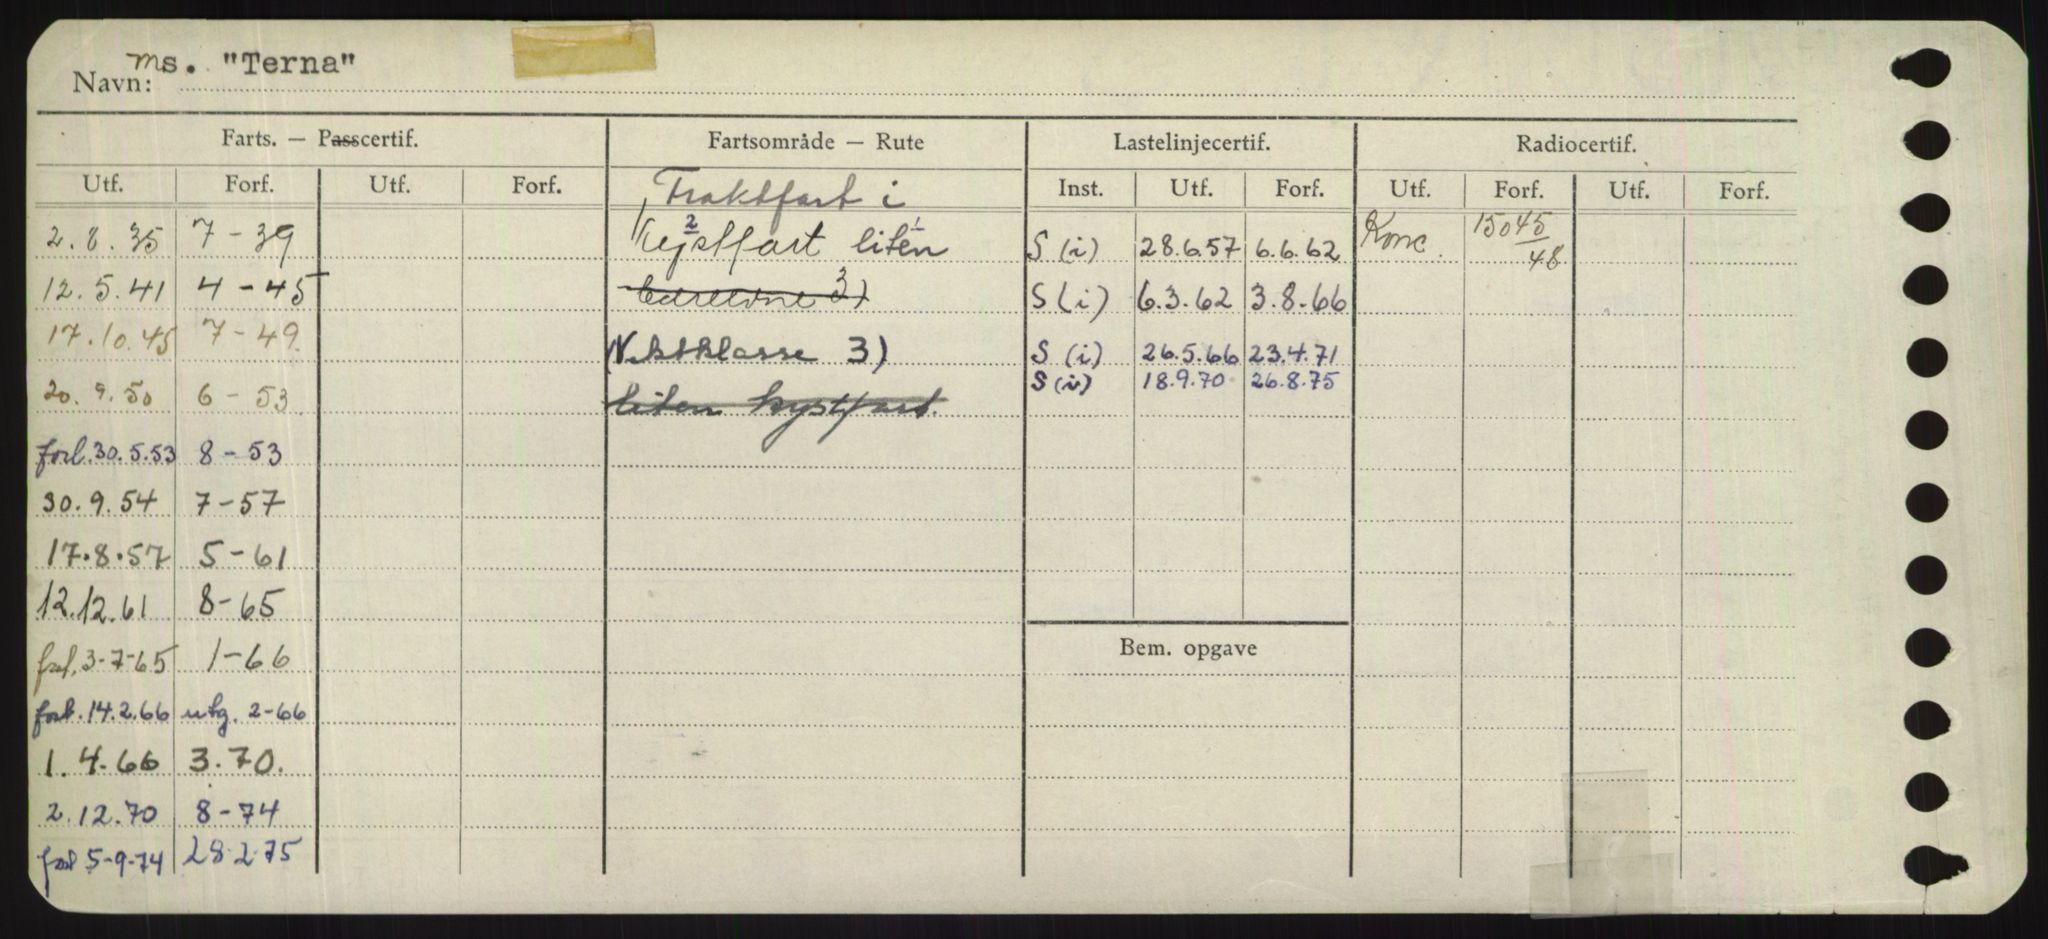 Navn: ms. "Terna"
Farts. — Passcertif. Fartsområde — Rute Lastelinjecertif. Radiocertif.
Utf. Forf. Utf. Forf. Fraktfart i Inst. Utf. Forf. Utf. Forf. Utf. Forf.
2.8.35 7-39 Kystfart 2 liten 1 S (i) 28.6.57 6.6.62 Konc. 15045/48
12.5.41 4-45 3) S (i) 6.3.62 3.8-66
17.10.45 7-49 Vektklasse 3) S (i) 26.5.66 23.4.71
S (i) 18.9.70 26.8.75
20.9.50 6-53 liten kystfart.
forl. 30.5.53 8-53
30.9.54 7-57
17.8.57 5-61
12.12.61 8-65
Bem. opgave
forl. 3-7-65 1-66
forl. 14.2.66 utg. 2-66
1.4.66 3.70.
2.12.70 8-74
forl 5-9-74 28.2.75